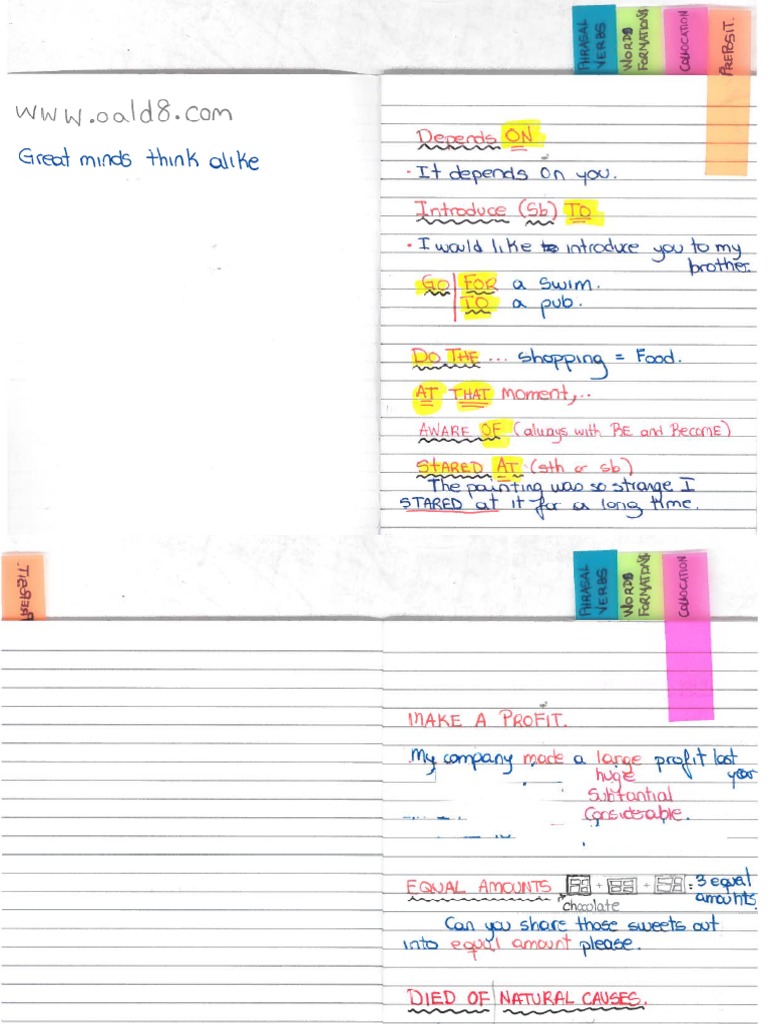 PHRASAL VERBS
WORDS FORMATIONS
COLLOCATION
PREPOSIT.
www.oald8.com
Great minds think alike
Depends ON
· It depends on you.
Introduce (Sb) TO
· I would like to introduce you to my
brother.
GO FOR a swim.
TO a pub.
DO THE ... shopping = Food.
AT THAT moment,..
AWARE OF (always with BE and Become)
STARED AT (sth or sb)
The painting was so strange I
STARED at it for a long time.
PREPOSIT.
PHRASAL VERBS
WORDS FORMATIONS
COLLOCATION
MAKE A PROFIT.
My company made a large profit last
year
huge
Substantial
Considerable.
EQUAL AMOUNTS + + = 3 equal
amounts.
chocolate
Can you share those sweets out
into equal amount please.
DIED OF NATURAL CAUSES.